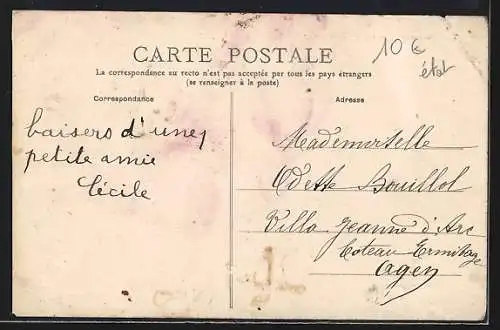 CARTE POSTALE
La correspondance au recto n'est pas acceptée par tous les pays étrangers
(se renseigner à la poste)
10 €
état
Correspondance
baisers d'une
petite amie
Cécile
Adresse
Mademoiselle
Odette Bouillol
Villa Jeanne d'Arc
Coteau Ermitage
Agen